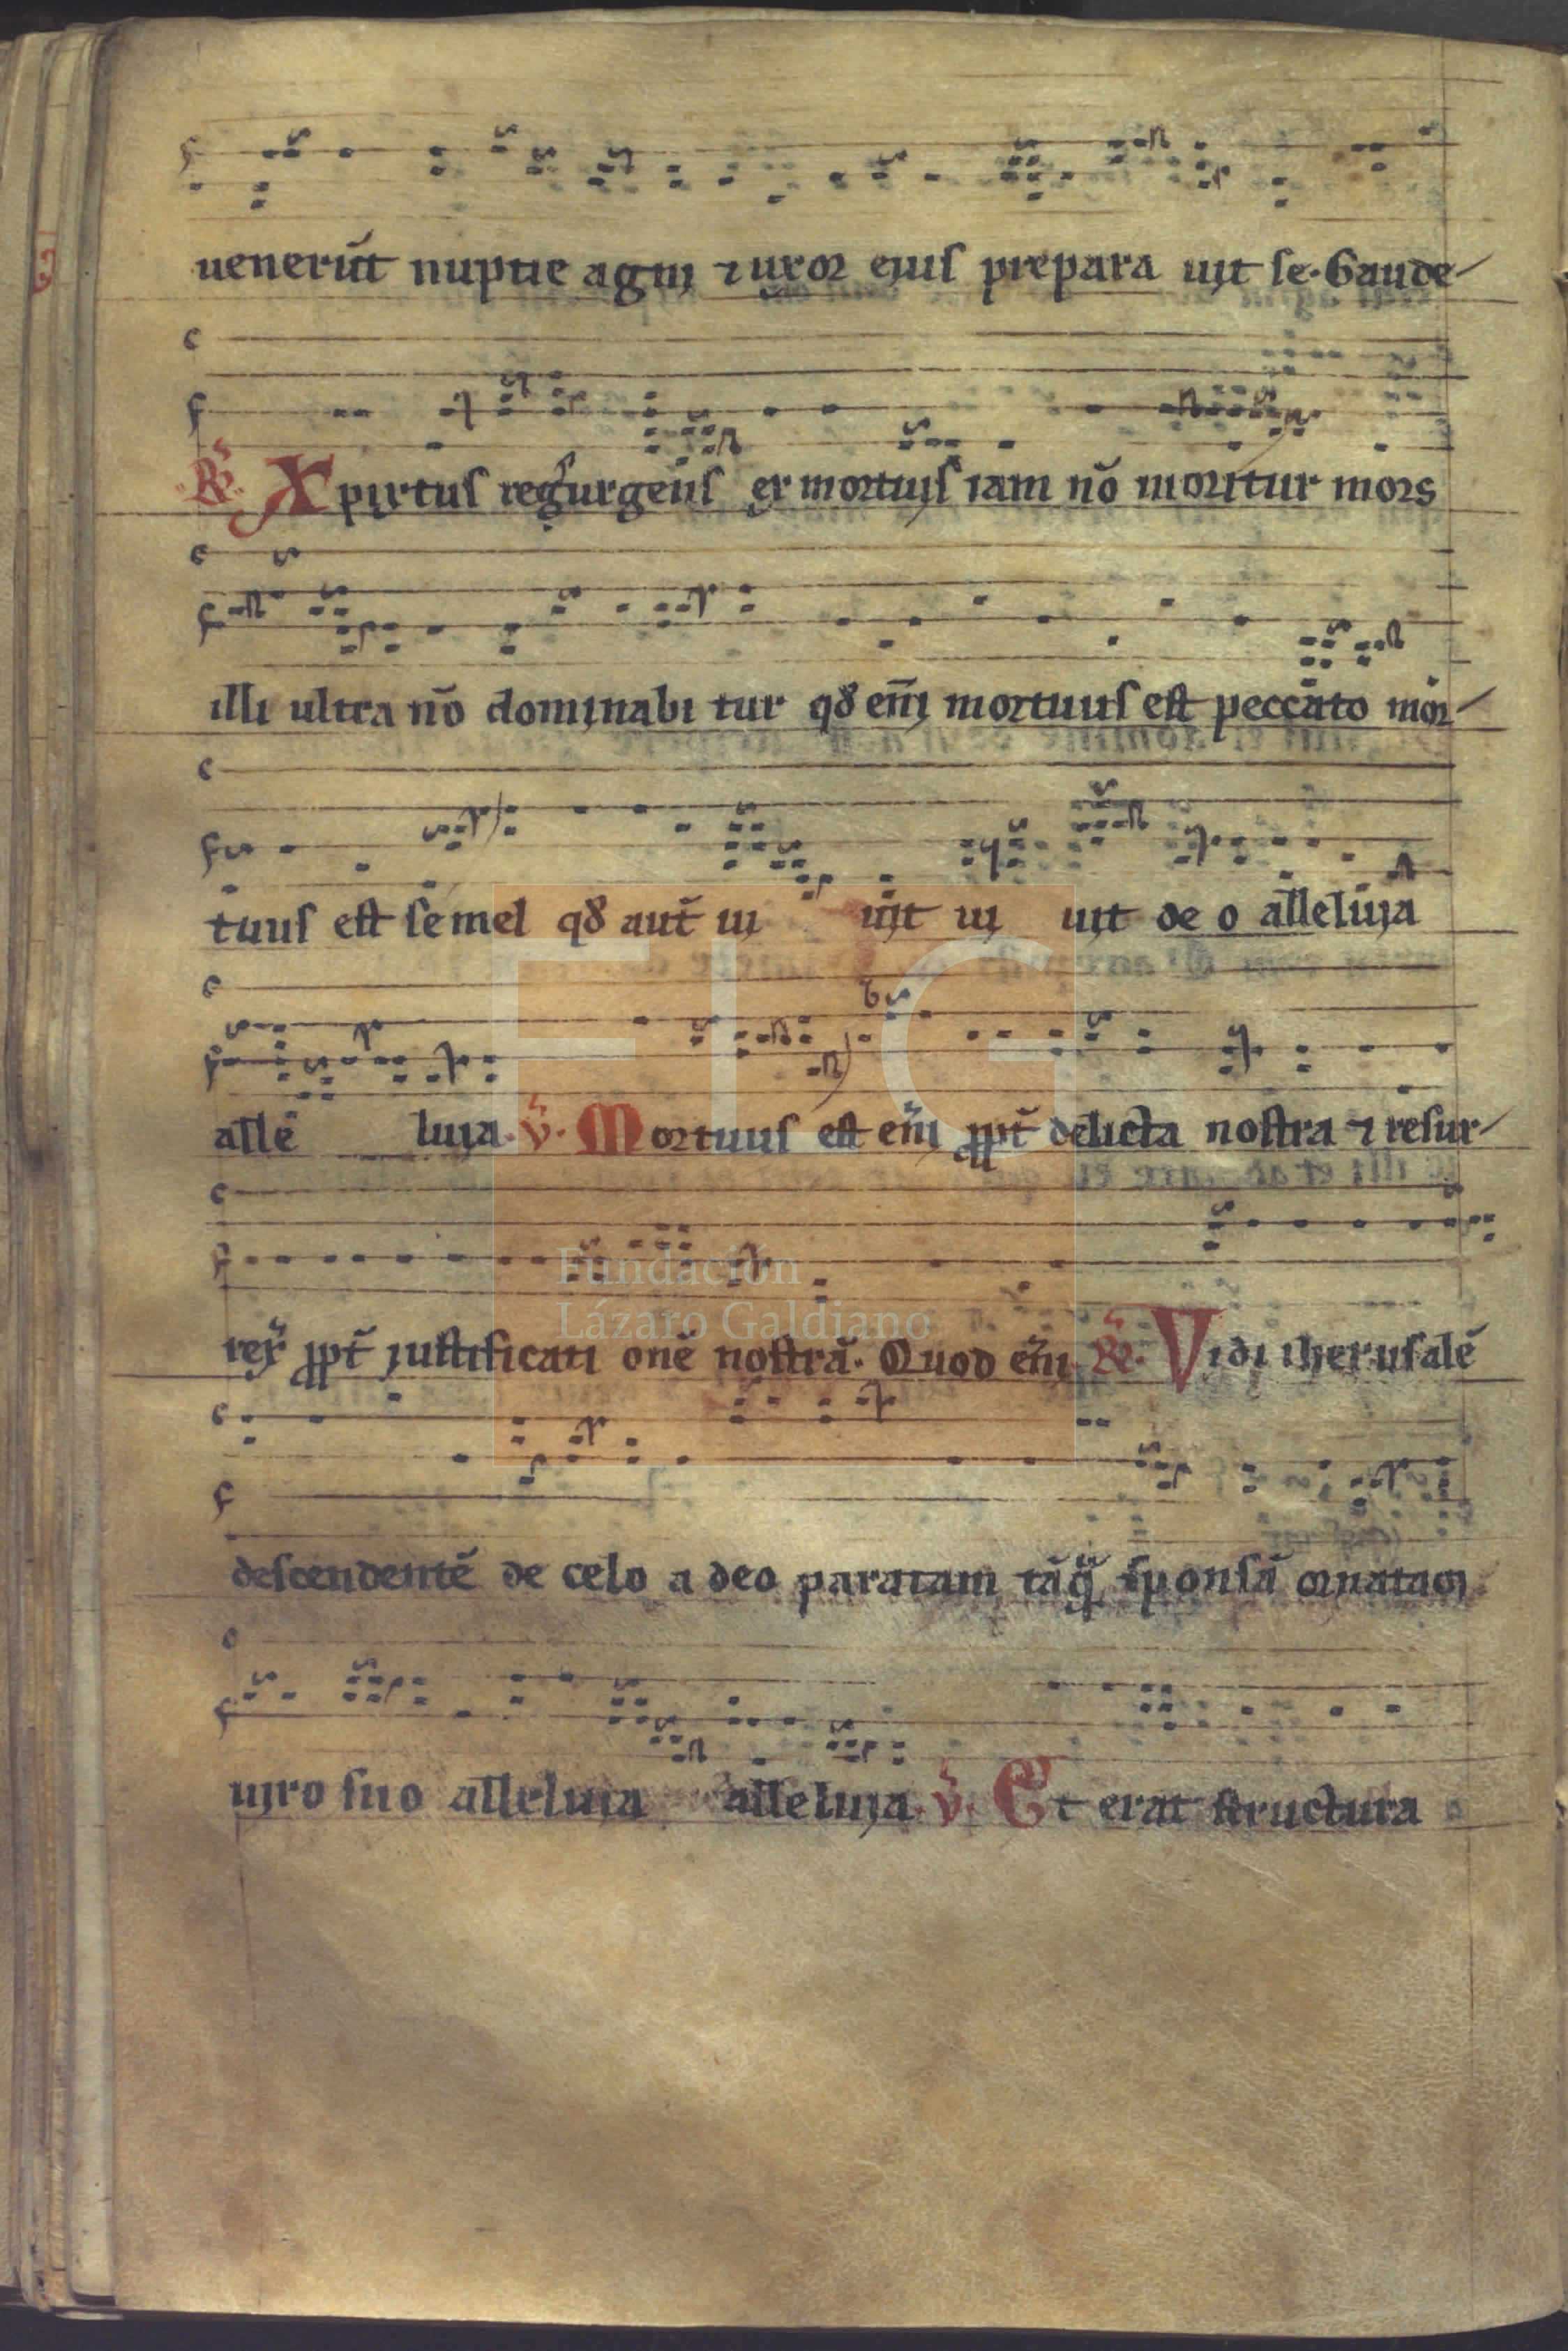 uenerūt nuptie agni ⁊ uxor eius prepara uit se. Gaude-
R̃. Xpistus resurgens ex mortuis iam nō moritur mors
illi ultra nō dominabi tur qd̓ eni̅ mortuus est peccato mor-
tuus est semel qd̓ aut̄ ui uit ui uit de o alleluia
alle luia. ṽ. Mortuus est eni̅ ꝓpt̄ delicta nostra ⁊ resur-
rex̄ ꝓpt̄ iustificati onē nostrā. Quod eni̅ R̃. Vidi iherusalē
descendentē de celo a deo paratam tāq̄ sponsā ornatam
uiro suo alleluia alleluia. ṽ. Et erat structura
FLG
Fundación
Lázaro Galdiano